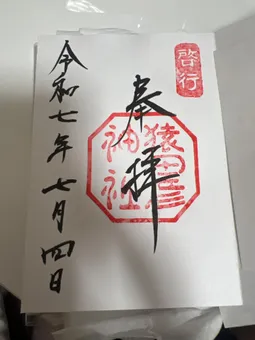 啓行
奉拝
猿田彦
神社
令和七年七月四日